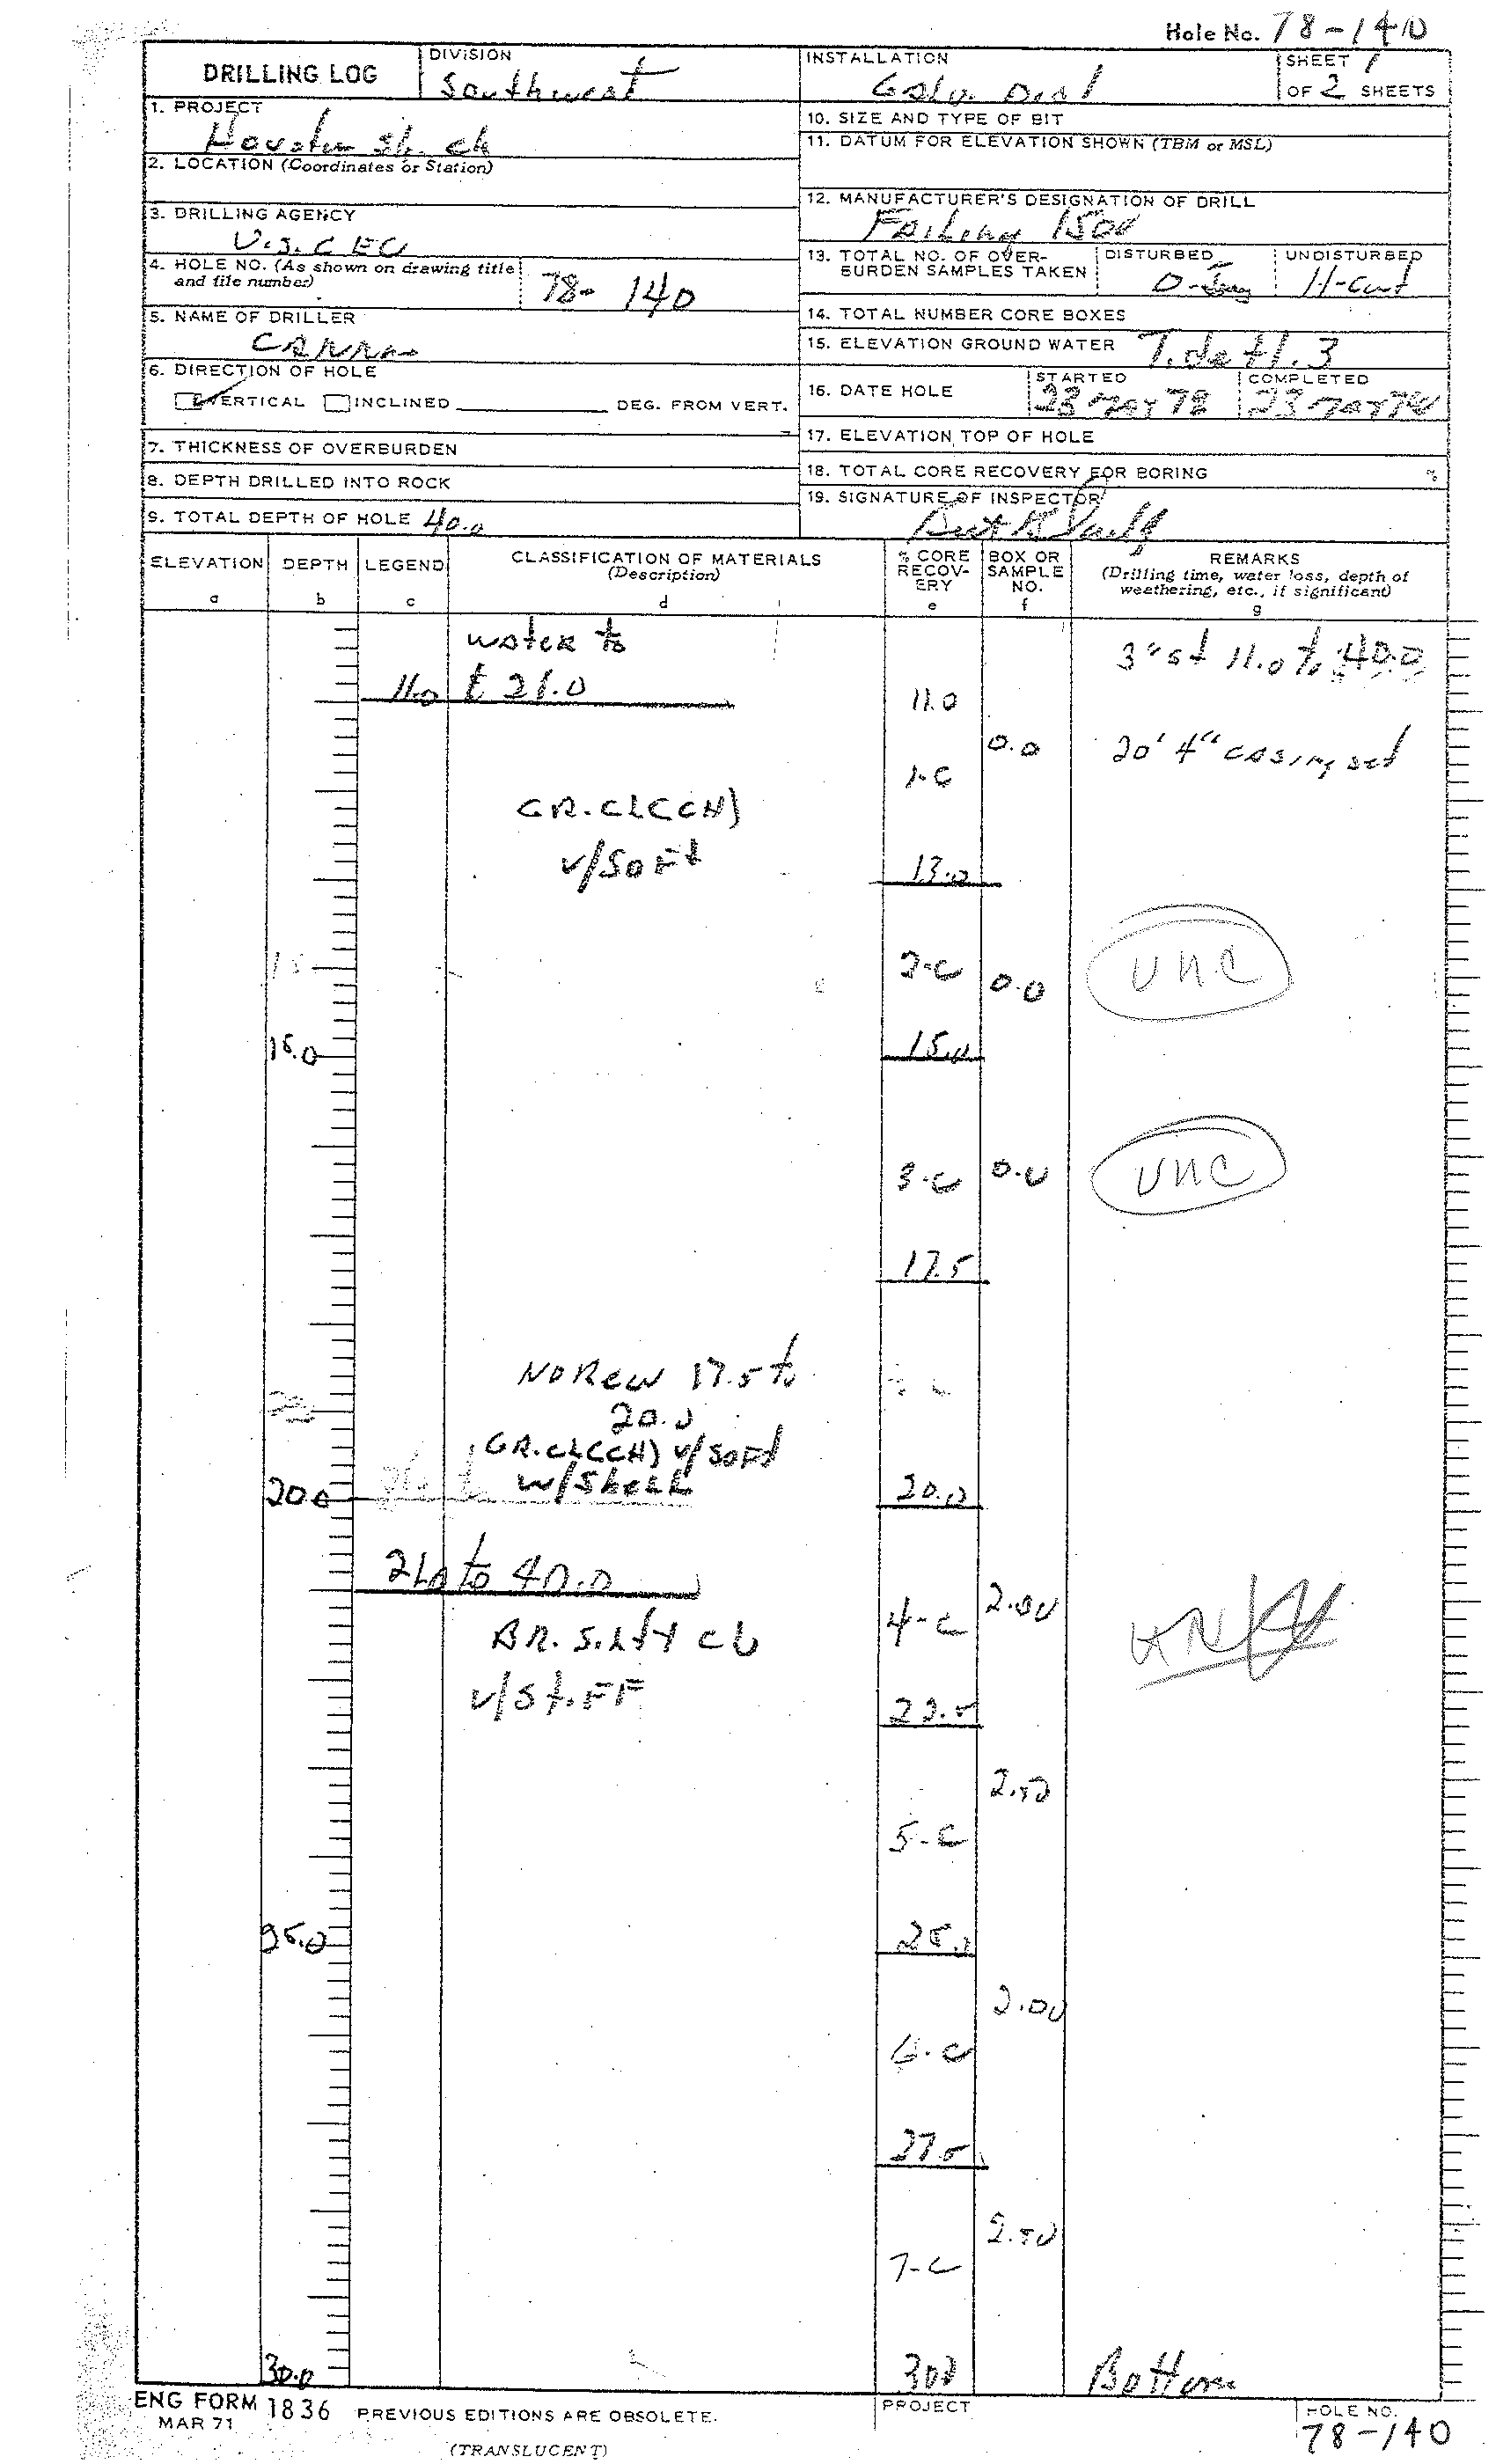 Hole No. 78-140
DRILLING LOG
DIVISION
Southwest
INSTALLATION
Galv. Dist
SHEET 1
OF 2 SHEETS
1. PROJECT
Houston Sh. Ch
2. LOCATION (Coordinates or Station)
3. DRILLING AGENCY
U.S. C E C
4. HOLE NO. (As shown on drawing title
and file number)
78- 140
5. NAME OF DRILLER
6. DIRECTION OF HOLE
VERTICAL INCLINED DEG. FROM VERT.
7. THICKNESS OF OVERBURDEN
8. DEPTH DRILLED INTO ROCK
9. TOTAL DEPTH OF HOLE 40.0
10. SIZE AND TYPE OF BIT
11. DATUM FOR ELEVATION SHOWN (TBM or MSL)
12. MANUFACTURER'S DESIGNATION OF DRILL
Failing 1500
13. TOTAL NO. OF OVER-
BURDEN SAMPLES TAKEN
DISTURBED
UNDISTURBED
0-Jar
11-Can
14. TOTAL NUMBER CORE BOXES
15. ELEVATION GROUND WATER Tide +1.3
16. DATE HOLE
STARTED
23 May 78
COMPLETED
23 May 78
17. ELEVATION TOP OF HOLE
18. TOTAL CORE RECOVERY FOR BORING %
19. SIGNATURE OF INSPECTOR
ELEVATION
a
DEPTH
b
LEGEND
c
CLASSIFICATION OF MATERIALS
(Description)
d
% CORE
RECOV-
ERY
e
BOX OR
SAMPLE
NO.
f
REMARKS
(Drilling time, water loss, depth of
weathering, etc., if significant)
g
water to
3" st 11.0 to 40.0
11.0 t 21.0
11.0
0.0
20' 4" casing set
1-C
GR.CL(CH)
v/soft
13.0
2-C
0.0
UNC
15.0
15.0
3-C
0.0
UNC
17.5
NO Rew 17.5 to
20.0
GR.CL(CH) v/soft
w/shell
20.0
20.0
21.0 to 40.0
4-C
2.00
BR. Silty CL
v/stiff
22.5
2.50
5-C
25.0
25.0
2.00
6-C
27.5
2.50
7-C
30.0
30.0
Bottom
ENG FORM 1836
MAR 71
PREVIOUS EDITIONS ARE OBSOLETE.
(TRANSLUCENT)
PROJECT
HOLE NO.
78-140